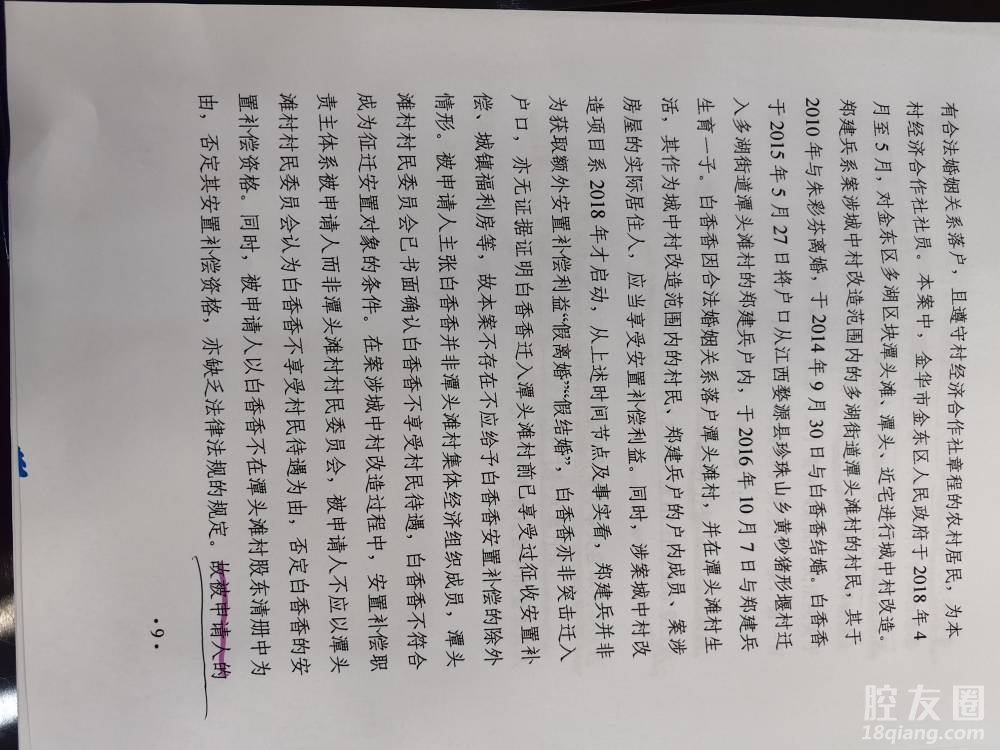 有合法婚姻关系落户，且遵守村经济合作社章程的农村居民，为本
村经济合作社社员。本案中，金华市金东区人民政府于 2018 年 4
月至 5 月，对金东区多湖区块潭头滩、潭头、近宅进行城中村改造。
郑建兵系案涉城中村改造范围内的多湖街道潭头滩村的村民，其于
2010 年与朱彩芬离婚，于 2014 年 9 月 30 日与白香香结婚。白香香
于 2015 年 5 月 27 日将户口从江西婺源县珍珠山乡黄砂猪形堰村迁
入多湖街道潭头滩村的郑建兵户内，于 2016 年 10 月 7 日与郑建兵
生育一子。白香香因合法婚姻关系落户潭头滩村，并在潭头滩村生
活，其作为城中村改造范围内的村民、郑建兵户的户内成员、案涉
房屋的实际居住人，应当享受安置补偿利益。同时，涉案城中村改
造项目系 2018 年才启动，从上述时间节点及事实看，郑建兵并非
为获取额外安置补偿利益“假离婚”“假结婚”，白香香亦非突击迁入
户口，亦无证据证明白香香迁入潭头滩村前已享受过征收安置补
偿、城镇福利房等，故本案不存在不应给予白香香安置补偿的除外
情形。被申请人主张白香香并非潭头滩村集体经济组织成员，潭头
滩村村民委员会已书面确认白香香不享受村民待遇，白香香不符合
成为征迁安置对象的条件。在案涉城中村改造过程中，安置补偿职
责主体系被申请人而非潭头滩村村民委员会，被申请人不应以潭头
滩村村民委员会认为白香香不享受村民待遇为由，否定白香香的安
置补偿资格。同时，被申请人以白香香不在潭头滩村股东清册中为
由，否定其安置补偿资格，亦缺乏法律法规的规定。故被申请人的
·9·
腔友圈
18qiang.com